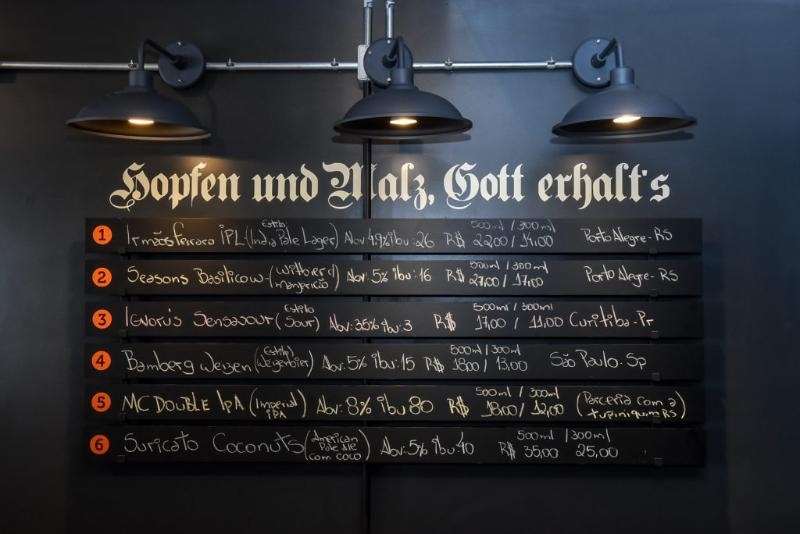 Hopfen und Malz, Gott erhalt's
1 Irmãos Ferraro IPL (Estilo India Pale Lager) Abv: 4.9% ibu: 26 R$ 500ml / 300ml 22,00 / 14,00 Porto Alegre - RS
2 Seasons Basilicow - (Witbier c/ manjericão) Abv: 5% ibu: 16 R$ 500ml / 300ml 27,00 / 17,00 Porto Alegre - RS
3 Ignorus Sensasour (Estilo Sour) Abv: 3.5% ibu: 3 R$ 500ml / 300ml 17,00 / 11,00 Curitiba - Pr
4 Bamberg Weizen (Estilo Weizenbier) Abv: 5% ibu: 15 R$ 500ml / 300ml 18,00 / 13,00 São Paulo - Sp
5 MC DOUBLE IPA (Imperial IPA) Abv: 8% ibu 80 R$ 500ml / 300ml 18,00 / (Parceria com a tupiniquim RS)
6 Suricato Coconuts (American Pale Ale com coco) Abv: 5% ibu: 40 R$ 500ml / 300ml 35,00 25,00